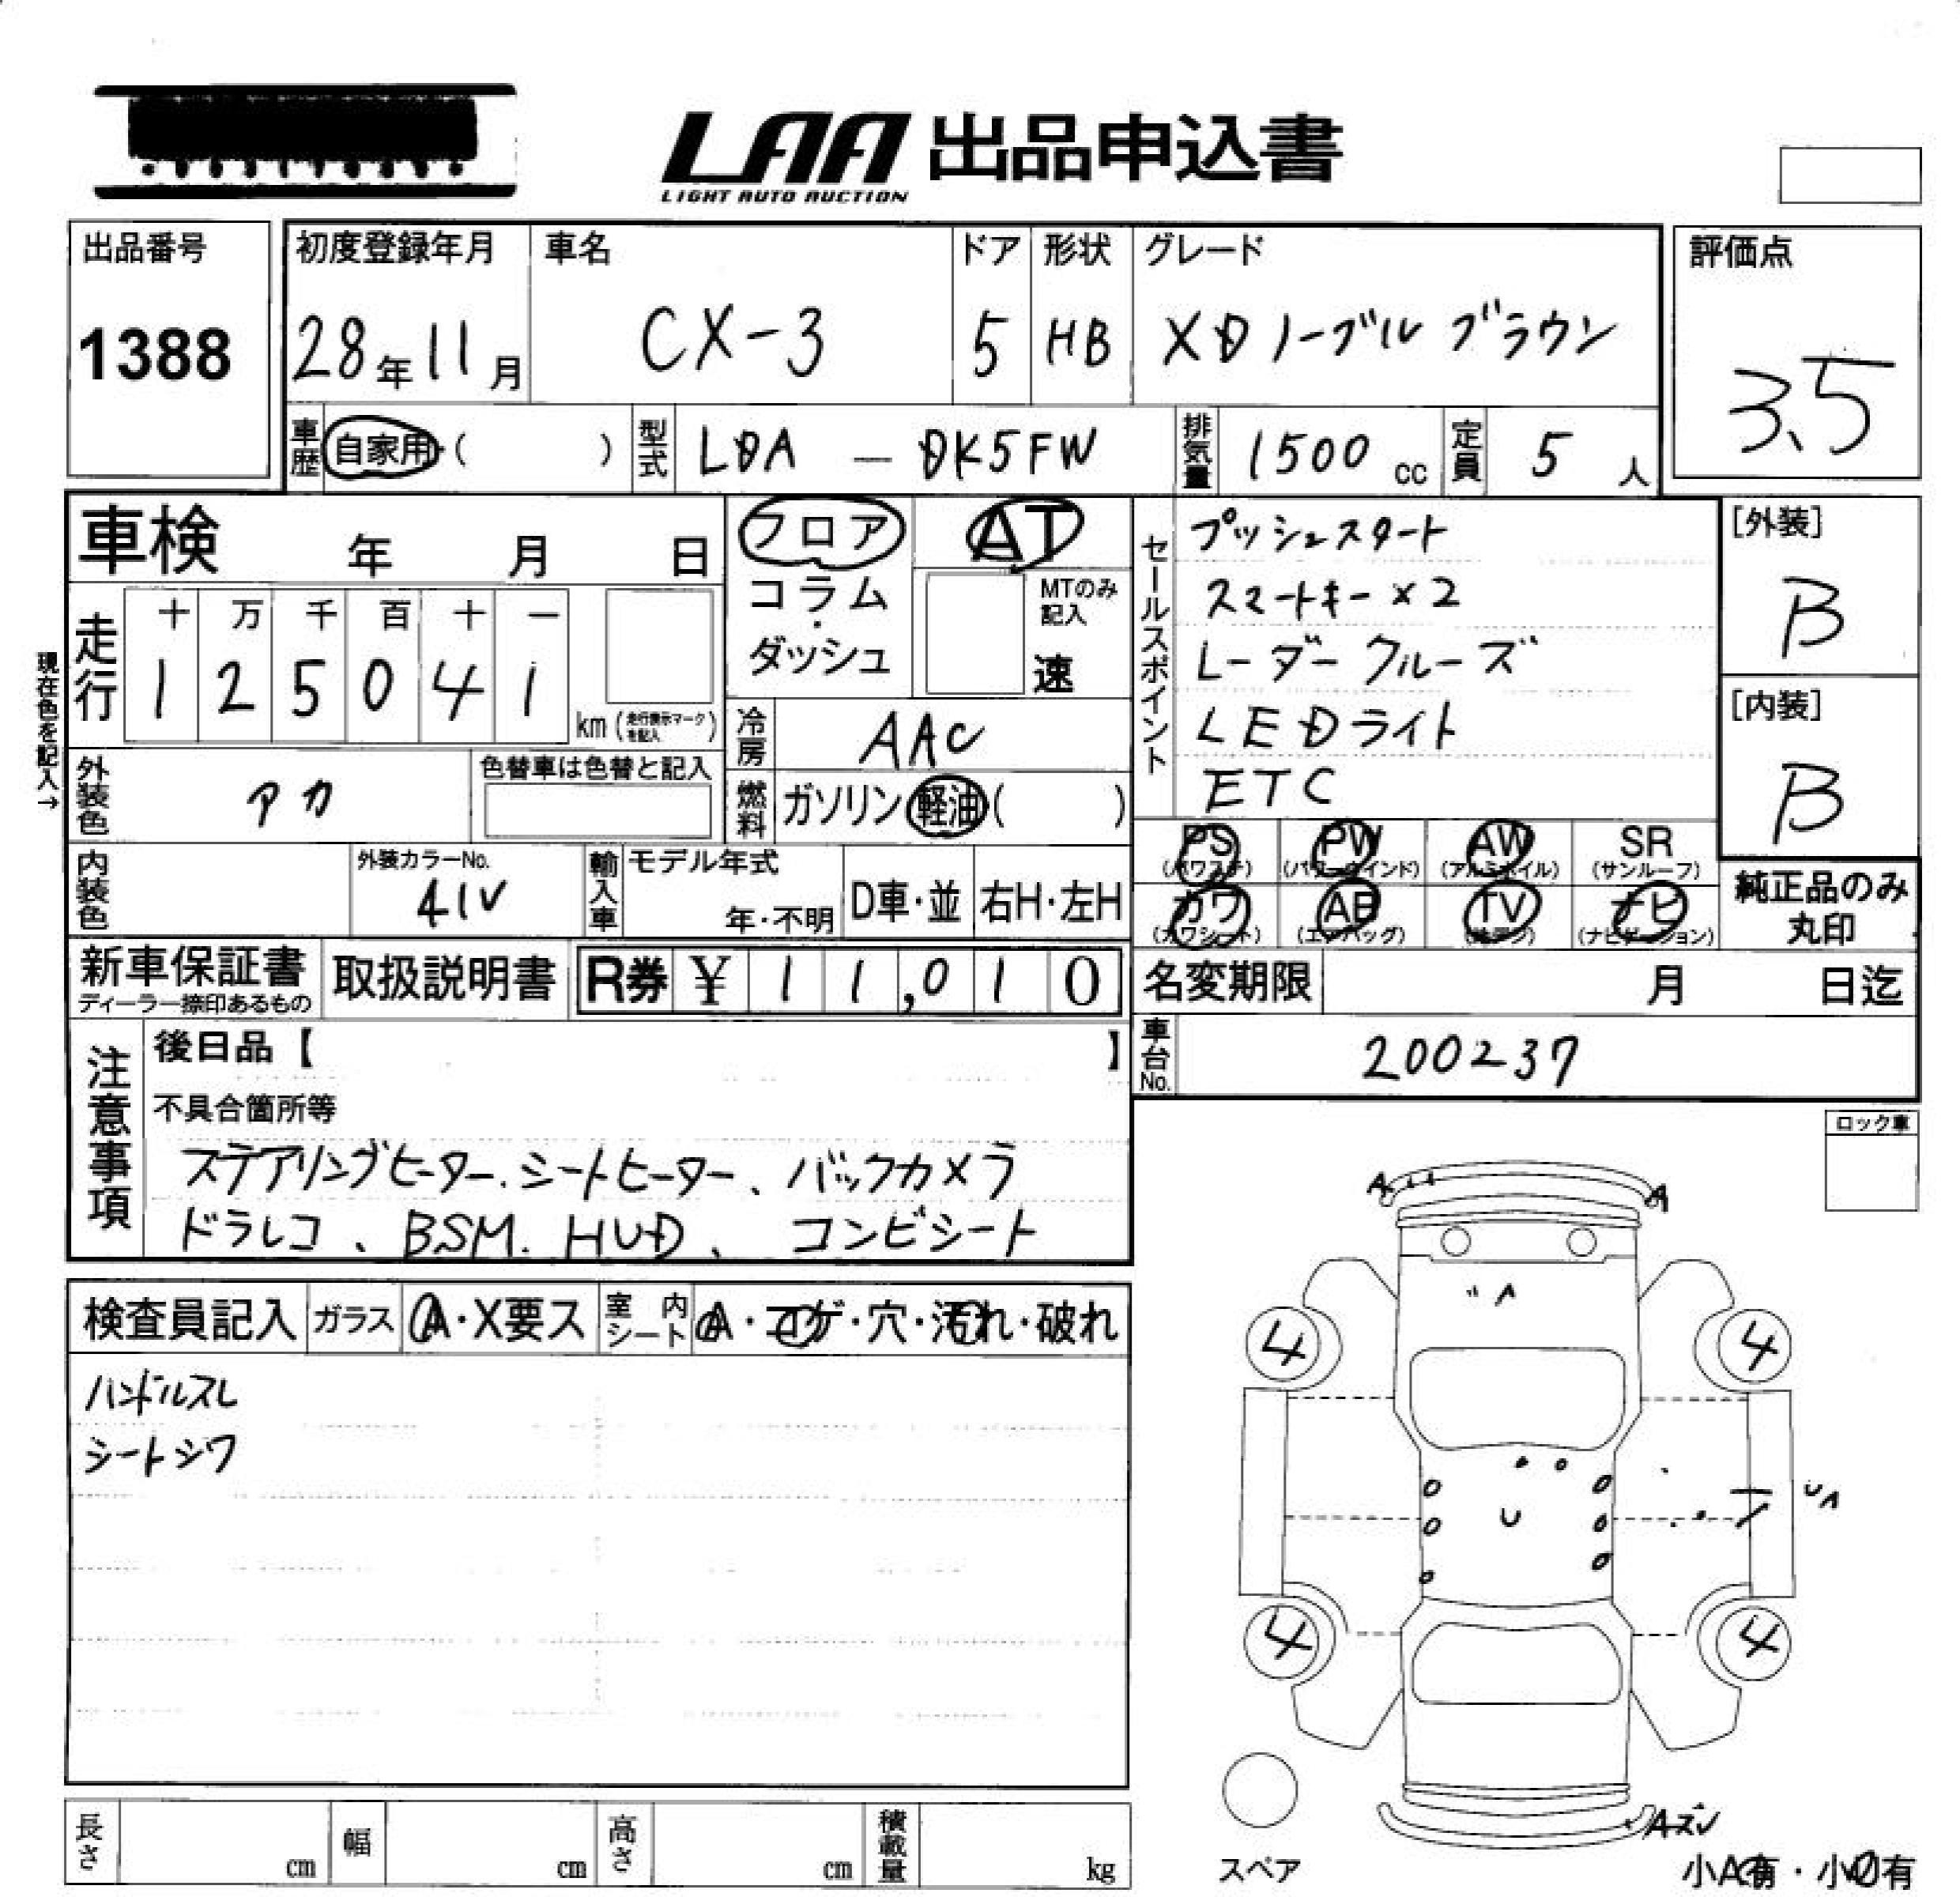 LAA 出品申込書
LIGHT AUTO AUCTION
出品番号
1388
初度登録年月
28年11月
車名
CX-3
ドア
5
形状
HB
グレード
XDノーブルブラウン
評価点
3.5
車歴 自家用・( )
型式 LDA - DK5FW
排気量 1500 cc
定員 5 人
車検 年 月 日
フロア
コラム
・
ダッシュ
AT
MTのみ
記入
速
現在色を記入→
走行
十 万 千 百 十 一
1 2 5 0 4 1
km (走行表示マークを記入)
冷房 AAC
燃料 ガソリン 軽油 ( )
外装色 アカ
色替車は色替と記入
内装色
外装カラーNo.
41V
輸入車
モデル年式
年・不明
D車・並
右H・左H
セールスポイント
プッシュスタート
スマートキー×2
レーダークルーズ
LEDライト
ETC
[外装]
B
[内装]
B
PS (パワステ)
PW (パワーウインド)
AW (アルミホイル)
SR (サンルーフ)
カワ (カワシート)
AB (エアバッグ)
TV
ナビ (ナビゲーション)
純正品のみ
丸印
新車保証書
ディーラー捺印あるもの
取扱説明書
R券 ¥ 11,010
名変期限 月 日迄
車台No. 200237
注意事項
後日品【 】
不具合箇所等
ステアリングヒーター、シートヒーター、バックカメラ
ドラレコ、BSM、HUD、コンビシート
ロック車
検査員記入
ガラス A・X要ス
室内シート A・コゲ・穴・汚れ・破れ
ハンドルスレ
シートシワ
A A
A
4 4
U
UA
4 4
Aズレ
スペア
小A有・小U有
長さ cm
幅 cm
高さ cm
積載量 kg